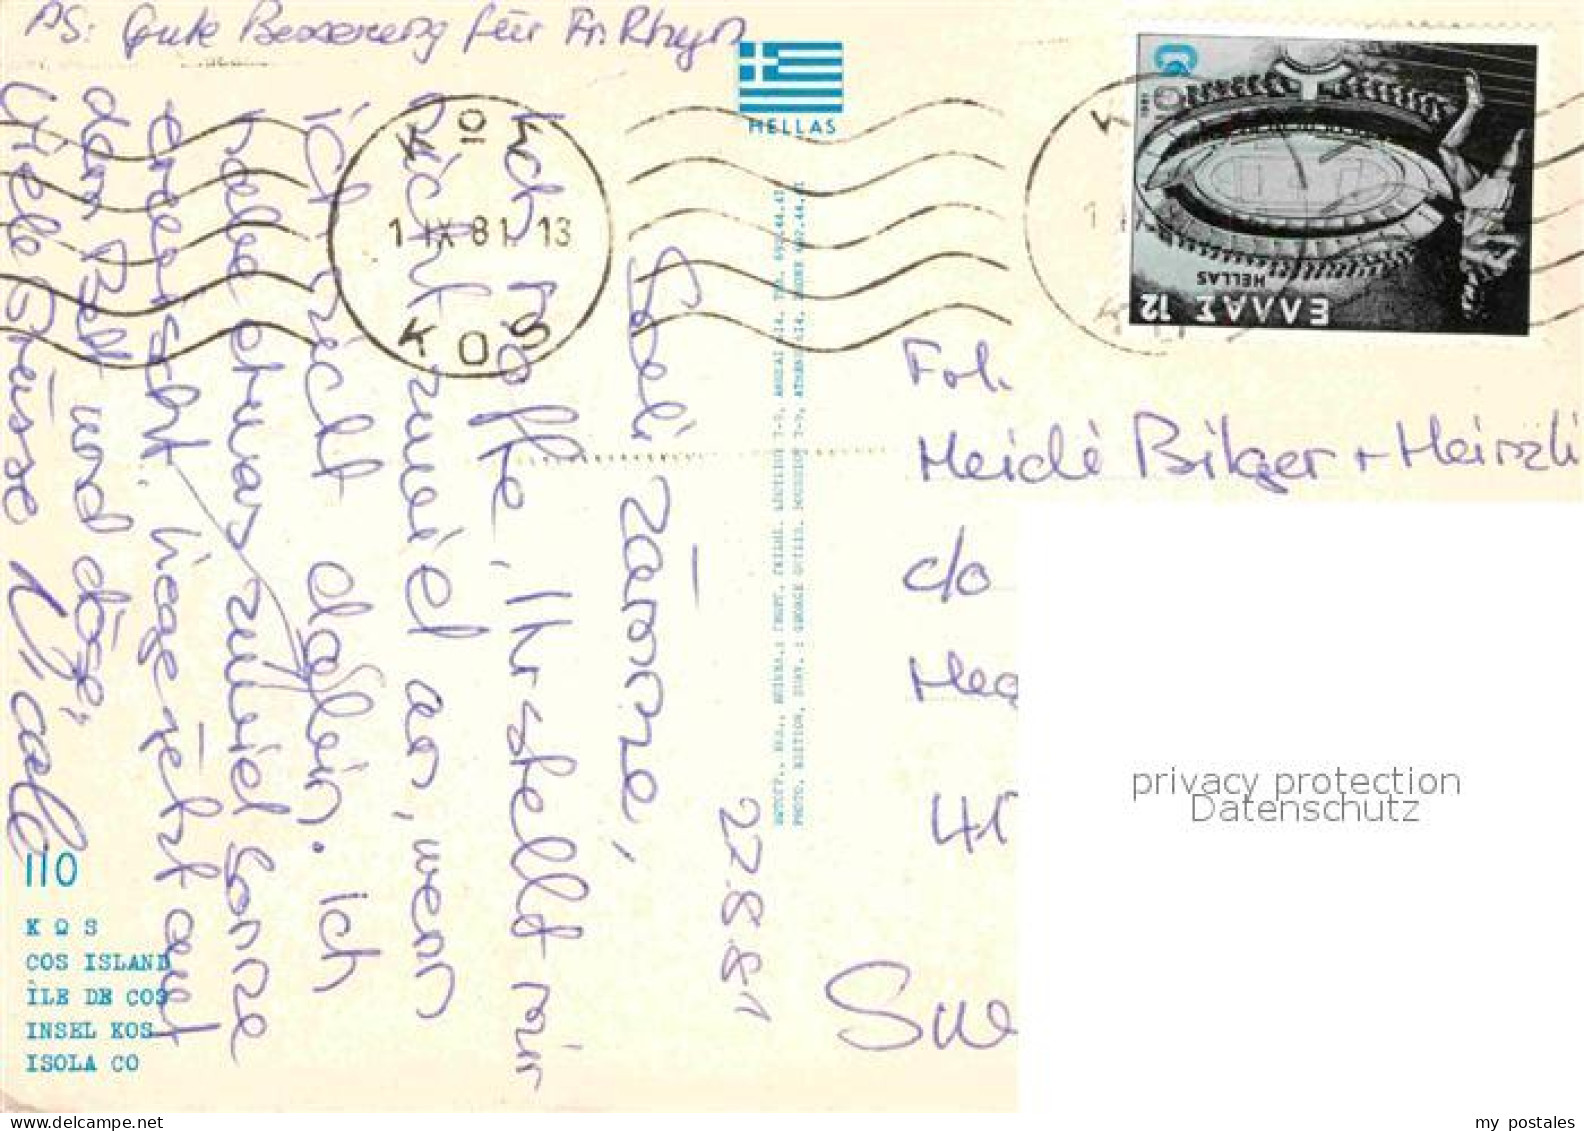 PS: Gute Besserung für Fr. Rhyn
HELLAS
27.8.81
Sali zämme,
Ich hoffe, Ihr stellt mir
nicht zuviel an, wenn
ich nicht da bin. Ich
habe etwas zuviel Sonne
erwischt. Liege jetzt auf
dem Bett und döse.
Viele Grüsse Nicole
KOS
10
1 IX 81. 13
ΚΩΣ
ΕΛΛΑΣ 12
HELLAS
1981
Fam.
Heidi Bilger + Heinzli
c/o
Heg
41
Swe
110
ΚΩΣ
COS ISLAND
ÎLE DE COS
INSEL KOS
ISOLA CO
privacy protection
Datenschutz
my postales